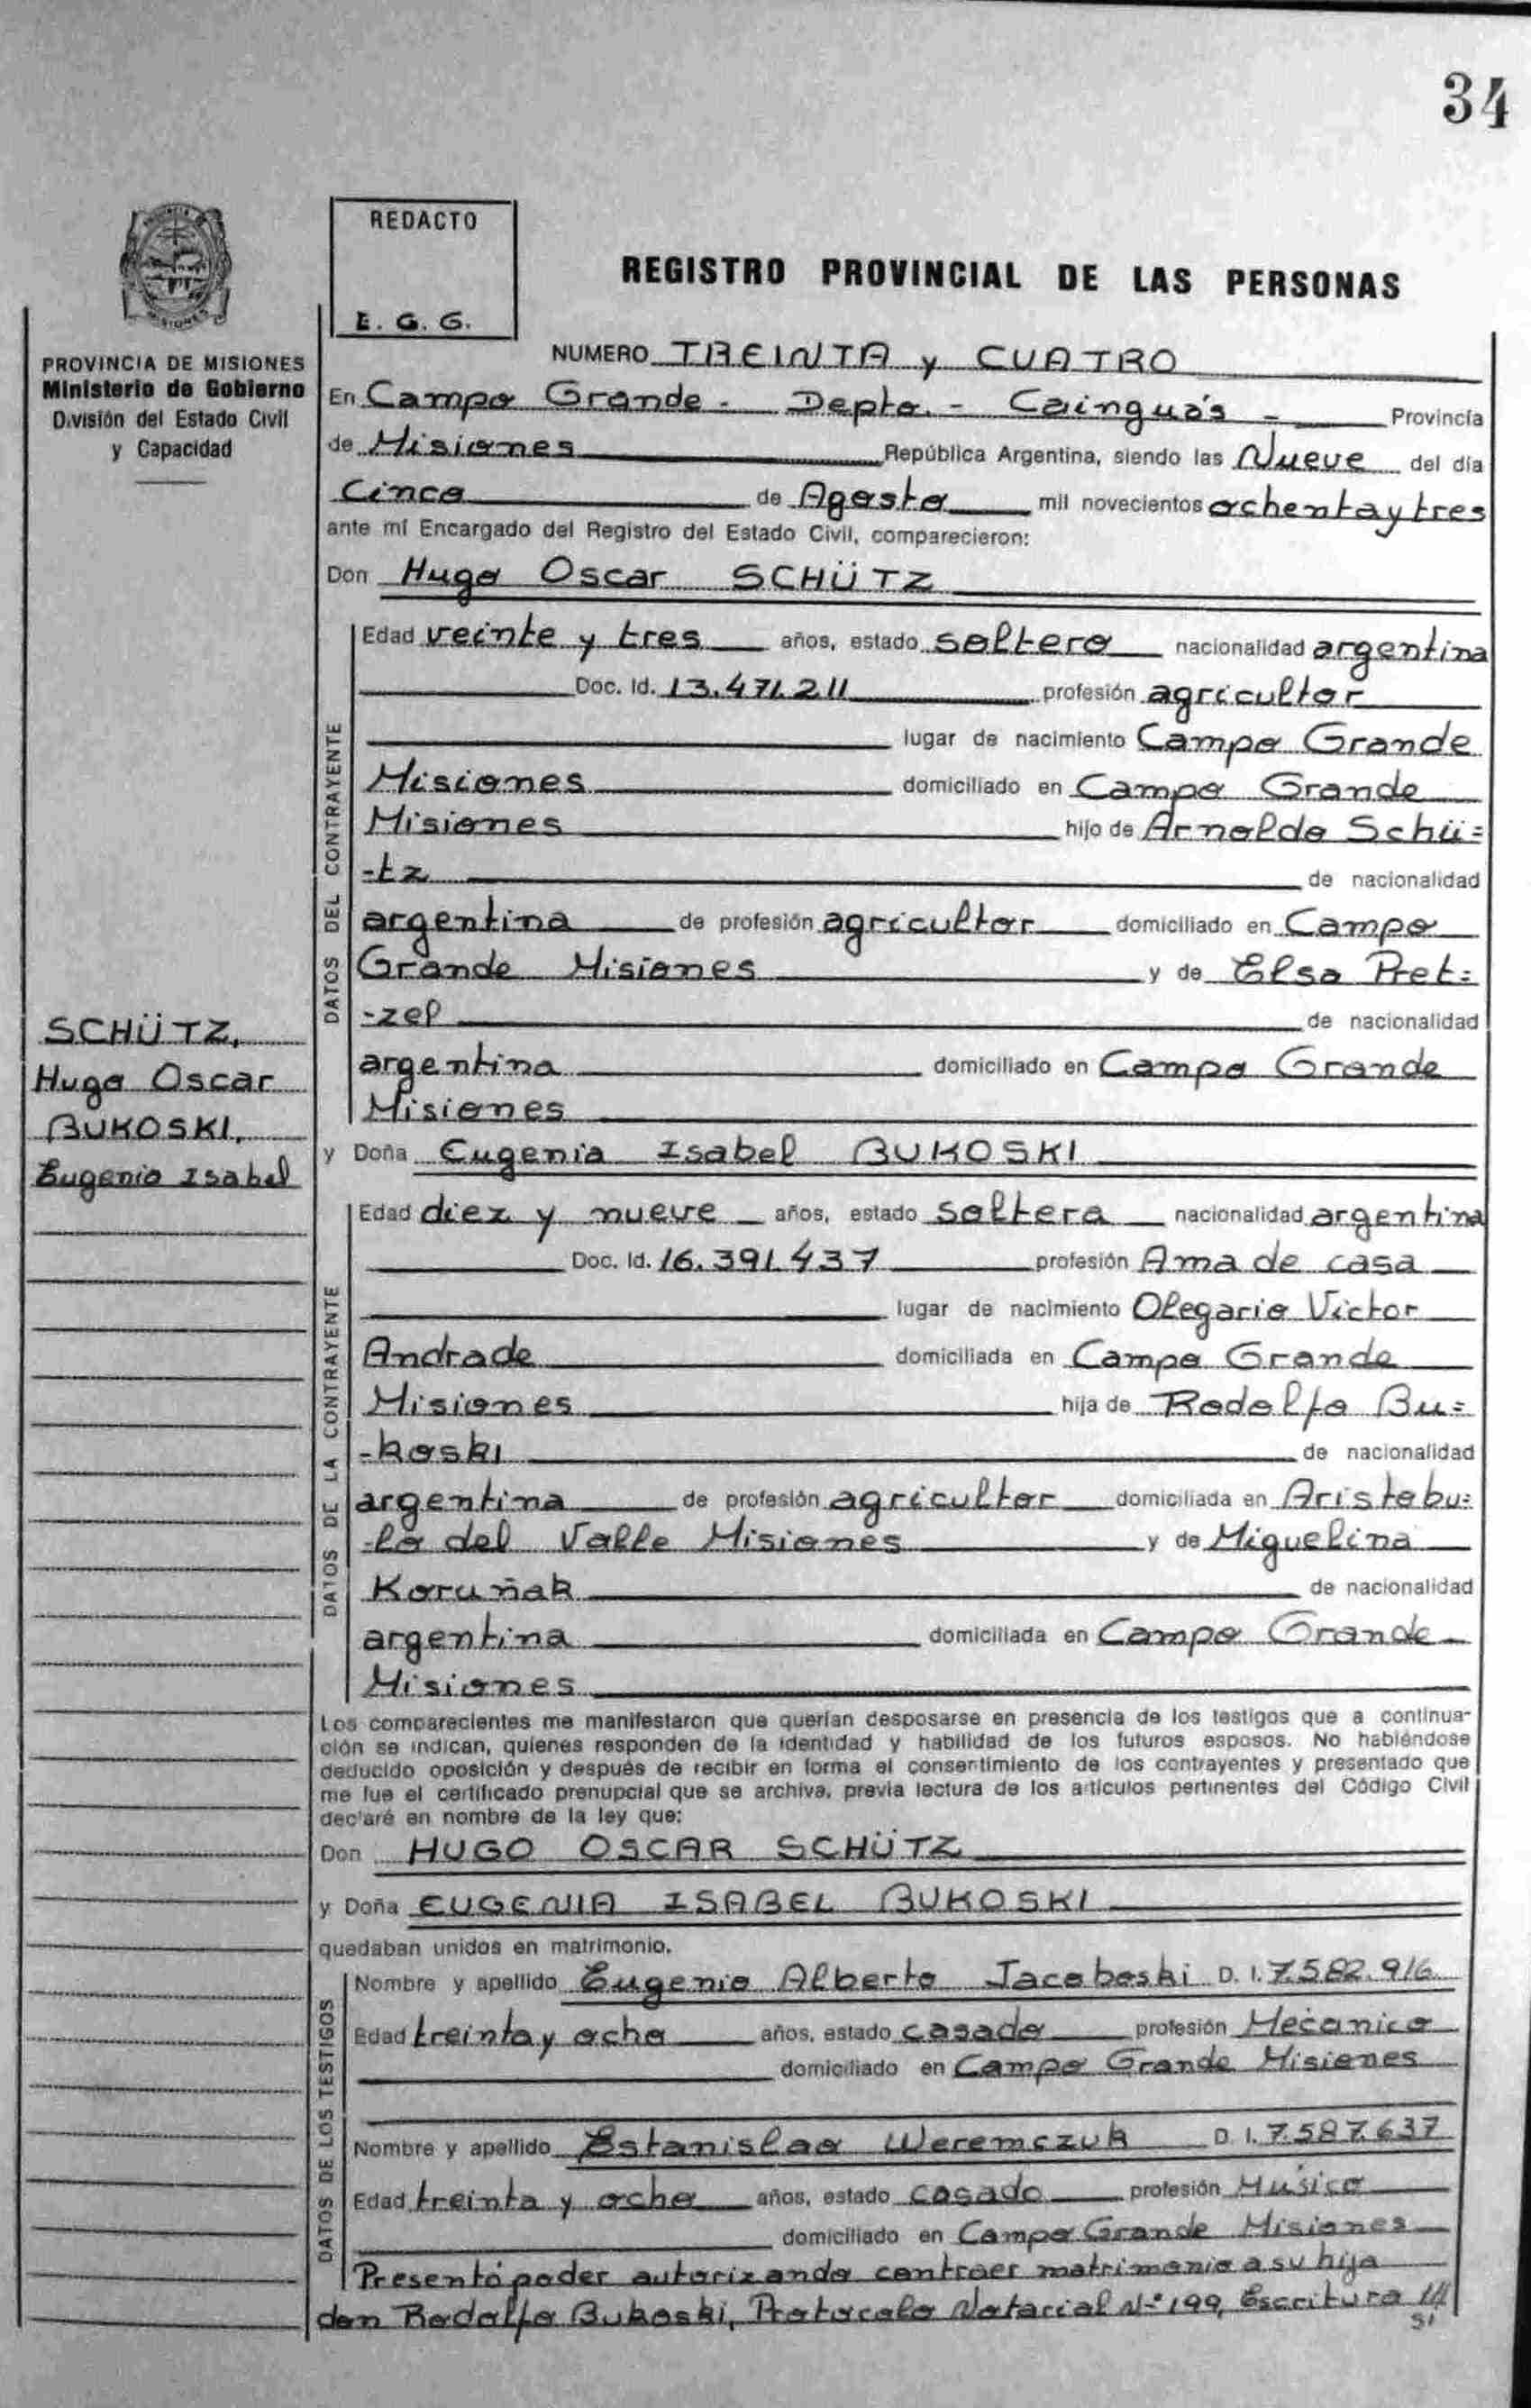 34
REDACTO
E. G. G.
REGISTRO PROVINCIAL DE LAS PERSONAS
PROVINCIA DE MISIONES
Ministerio de Gobierno
División del Estado Civil
y Capacidad
NUMERO TREINTA y CUATRO
En Campo Grande - Depto. - Cainguás - Provincia
de Misiones República Argentina, siendo las Nueve del día
Cinco de Agosto mil novecientos ochenta y tres
ante mí Encargado del Registro del Estado Civil, comparecieron:
Don Hugo Oscar SCHÜTZ
DATOS DEL CONTRAYENTE
Edad veinte y tres años, estado soltero nacionalidad argentina
Doc. Id. 13.471.211 profesión agricultor
lugar de nacimiento Campo Grande
Misiones domiciliado en Campo Grande
Misiones hijo de Arnoldo Schü=
-tz de nacionalidad
argentina de profesión agricultor domiciliado en Campo
Grande Misiones y de Elsa Pret=
-zel de nacionalidad
argentina domiciliado en Campo Grande
Misiones
SCHÜTZ,
Hugo Oscar
BUKOSKI,
Eugenia Isabel
y Doña Eugenia Isabel BUKOSKI
DATOS DE LA CONTRAYENTE
Edad diez y nueve años, estado soltera nacionalidad argentina
Doc. Id. 16.391.437 profesión Ama de casa
lugar de nacimiento Olegario Victor
Andrade domiciliada en Campo Grande
Misiones hija de Rodolfo Bu=
-koski de nacionalidad
argentina de profesión agricultor domiciliada en Aristobu=
-lo del Valle Misiones y de Miguelina
Koruñak de nacionalidad
argentina domiciliada en Campo Grande
Misiones
Los comparecientes me manifestaron que querían desposarse en presencia de los testigos que a continua-
ción se indican, quienes responden de la identidad y habilidad de los futuros esposos. No habiéndose
deducido oposición y después de recibir en forma el consentimiento de los contrayentes y presentado que
me fue el certificado prenupcial que se archiva, previa lectura de los artículos pertinentes del Código Civil
declaré en nombre de la ley que:
Don HUGO OSCAR SCHÜTZ
y Doña EUGENIA ISABEL BUKOSKI
quedaban unidos en matrimonio.
DATOS DE LOS TESTIGOS
Nombre y apellido Eugenio Alberto Jacoboski D. I. 7.582.916
Edad treinta y ocho años, estado casado profesión Mecánico
domiciliado en Campo Grande Misiones
Nombre y apellido Estanislao Weremczuk D. I. 7.587.637
Edad treinta y ocho años, estado casado profesión Músico
domiciliado en Campo Grande Misiones
Presentó poder autorizando contraer matrimonio a su hija
don Rodolfo Bukoski, Protocolo Notarial Nº 199, Escritura